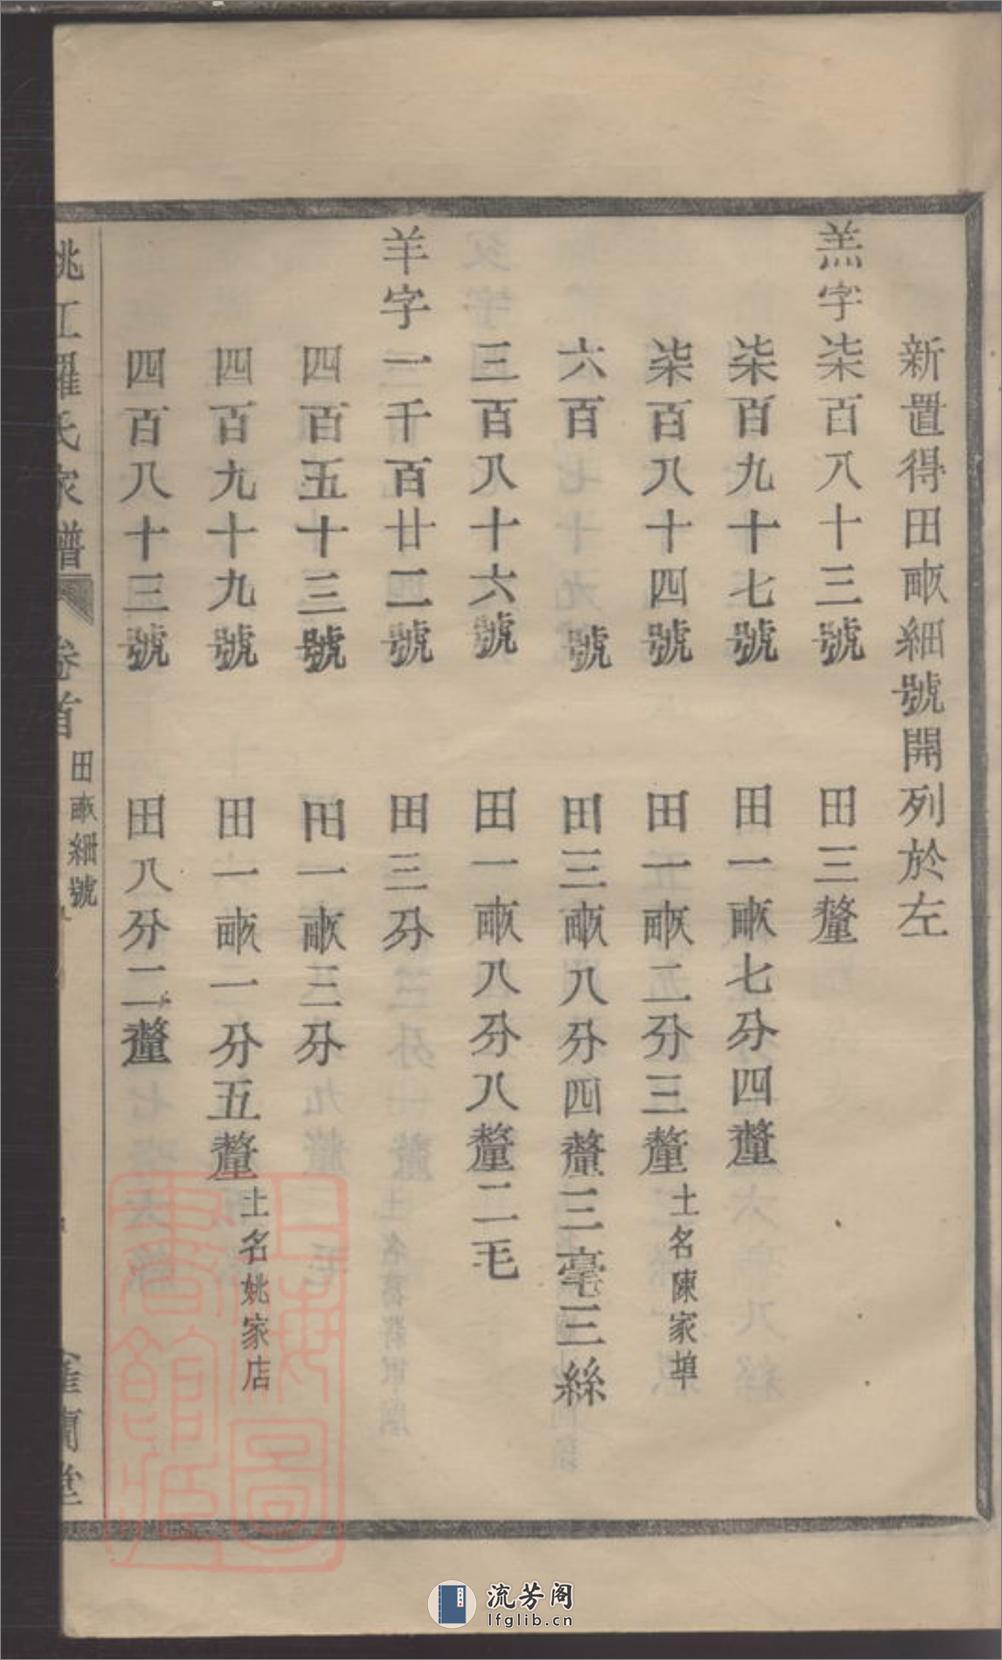 新置得田畝細號開列於左
羔字柒百八十三號　田三釐
柒百九十七號　田一畝七分四釐
柒百八十四號　田一畝二分三釐　土名陳家埠
六百　號　田三畝八分四釐三毫三絲
三百八十六號　田一畝八分八釐二毛
羊字一千百廿二號　田三分
四百五十三號　田一畝三分
四百九十九號　田一畝二分五釐　土名姚家店
四百八十三號　田八分二釐
姚江羅氏家譜　卷首　田畝細號
蘭堂
上海圖書館藏
流芳阁
lfglib.cn